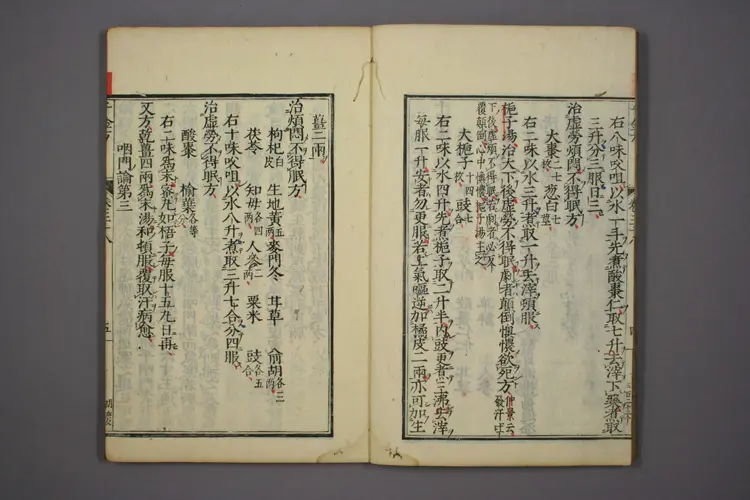 右八味㕮咀以水一斗先煮酸棗仁取七升去滓下藥煮取
三升分三服日三
治虛勞煩悶不得眠方
大棗二七枚 葱白七莖
右二味以水三升煮取一升去滓頓服
梔子湯治大下後虛勞不得眠劇者顛倒懊憹欲死方仲景云發汗吐
下後虛煩不得眠若劇者必反
覆顛倒心中懊憹梔子湯主之
大梔子十四枚 豉七合
右二味以水四升先煮梔子取二升半內豉更煮三沸去滓
每服一升安者勿更服若上氣嘔逆加橘皮二兩亦可加生
薑二兩
治煩悶不得眠方
枸杞白皮 生地黃各五兩 麥門冬 甘草 前胡各三兩
茯苓 知母各四兩 人參二兩 粟米 豉各五合
右十味㕮咀以水八升煮取三升七合分四服
治虛勞不得眠方
酸棗 榆葉各等分
右二味為末蜜丸如梧子每服十五丸日再
又方乾薑四兩為末湯和頓服覆取汗病愈
咽門論第三
五